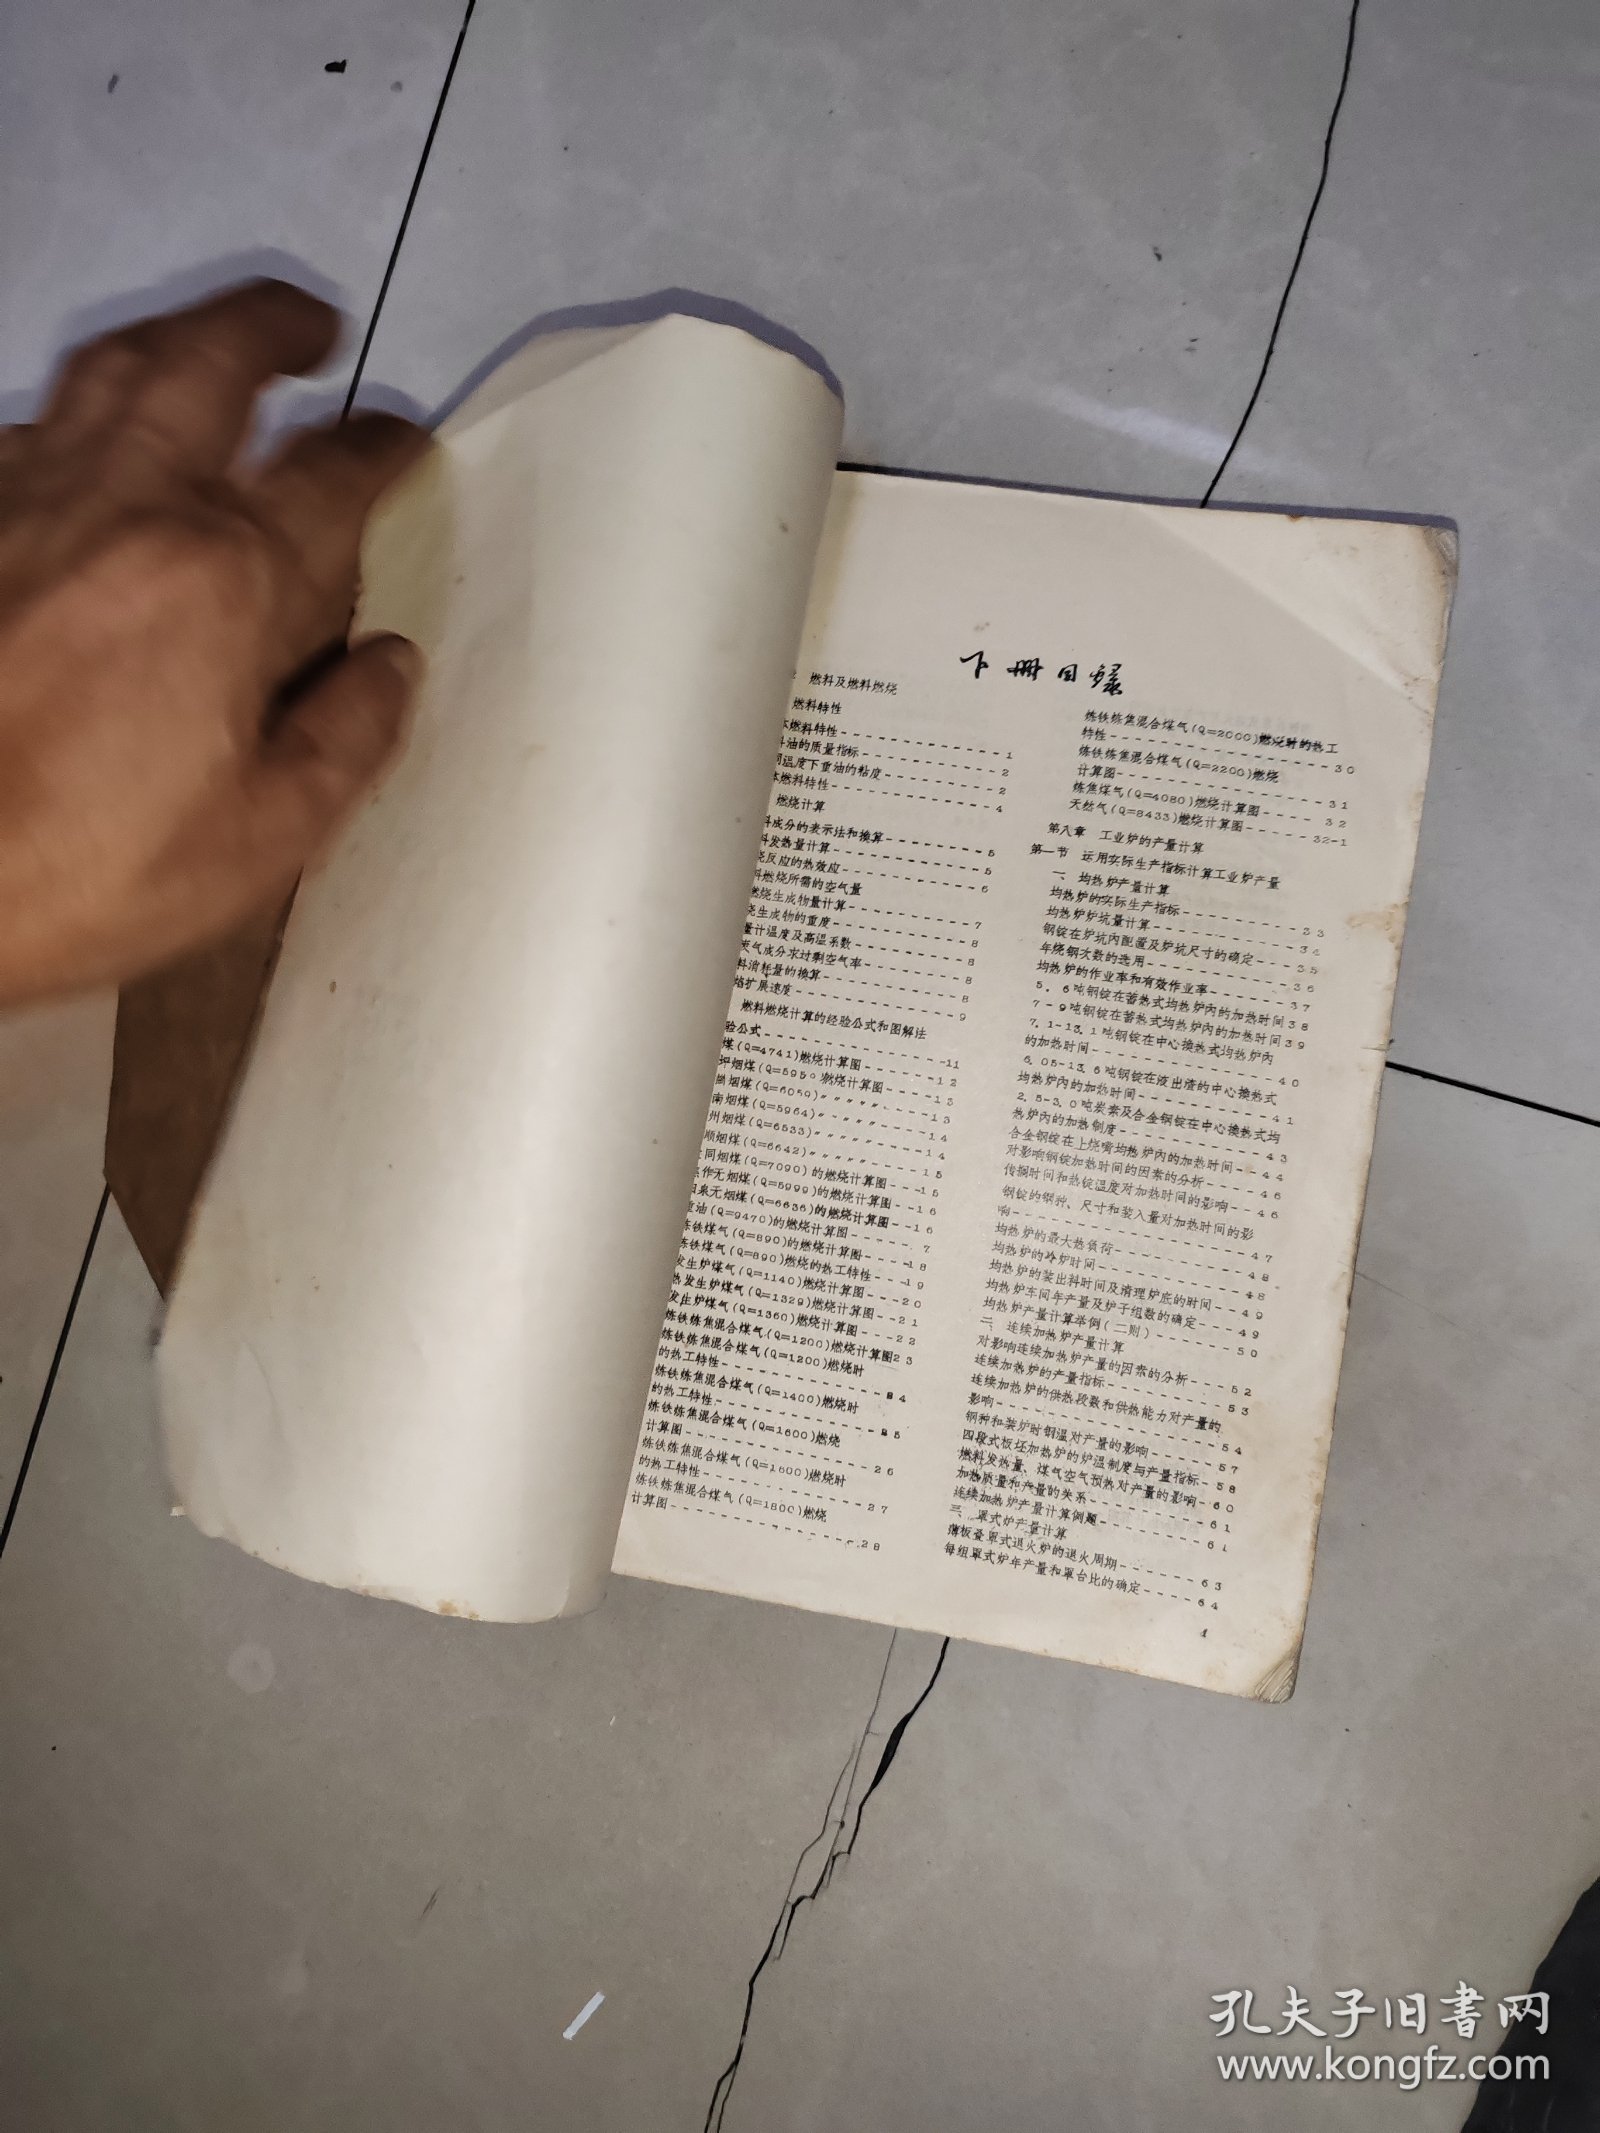 下册目录
燃料及燃料燃烧
燃料特性
燃料特性------------1
油的质量指标----------2
温度下重油的粘度--------2
燃料特性------------4
燃烧计算
成分的表示法和换算-------5
发热量计算-----------5
反应的热效应----------6
燃烧所需的空气量
燃烧生成物量计算--------7
生成物的重度----------8
量计温度及高温系数-------8
气成分求过剩空气率-------8
料消耗量的换算---------8
焰扩展速度-----------9
燃料燃烧计算的经验公式和图解法
验公式-------------11
煤(Q=4741)燃烧计算图-----12
坪烟煤(Q=5950燃烧计算图----13
烟煤(Q=6059)〃〃〃〃〃----13
南烟煤(Q=5964)〃〃〃〃〃----14
州烟煤(Q=6533)〃〃〃〃〃----14
顺烟煤(Q=6642)〃〃〃〃〃----15
同烟煤(Q=7090)的燃烧计算图---15
作无烟煤(Q=5999)的燃烧计算图--16
泉无烟煤(Q=6636)的燃烧计算图--16
重油(Q=9470)的燃烧计算图----7
炼铁煤气(Q=890)的燃烧计算图---18
炼铁煤气(Q=890)燃烧的热工特性---19
发生炉煤气(Q=1140)燃烧计算图---20
热发生炉煤气(Q=1329)燃烧计算图--21
发生炉煤气(Q=1360)燃烧计算图---22
炼铁炼焦混合煤气(Q=1200)燃烧计算图23
炼铁炼焦混合煤气(Q=1200)燃烧时
的热工特性-----------24
炼铁炼焦混合煤气(Q=1400)燃烧时
的热工特性-----------25
炼铁炼焦混合煤气(Q=1600)燃烧
计算图-------------26
炼铁炼焦混合煤气(Q=1600)燃烧时
的热工特性-----------27
炼铁炼焦混合煤气(Q=1800)燃烧
计算图-------------28
炼铁炼焦混合煤气(Q=2000)燃烧时的热工
特性--------------30
炼铁炼焦混合煤气(Q=2200)燃烧
计算图-------------31
炼焦煤气(Q=4080)燃烧计算图----32
天然气(Q=8433)燃烧计算图-----32-1
第八章 工业炉的产量计算
第一节 运用实际生产指标计算工业炉产量
一、均热炉产量计算
均热炉的实际生产指标-------33
均热炉炉坑量计算---------34
钢锭在炉坑内配置及炉坑尺寸的确定---35
年烧钢次数的选用---------36
均热炉的作业率和有效作业率-----37
5.6吨钢锭在蓄热式均热炉内的加热时间38
7-9吨钢锭在蓄热式均热炉内的加热时间39
7.1-13.1吨钢锭在中心换热式均热炉内
的加热时间------------40
6.05-13.6吨钢锭在液出渣的中心换热式
均热炉内的加热时间--------41
2.5-3.0吨炭素及合金钢锭在中心换热式均
热炉内的加热制度---------43
合金钢锭在上烧嘴均热炉内的加热时间--44
对影响钢锭加热时间的因素的分析----46
传搁时间和热锭温度对加热时间的影响--46
钢锭的钢种、尺寸和装入量对加热时间的影
响---------------47
均热炉的最大热负荷--------48
均热炉的冷炉时间---------48
均热炉的装出料时间及清理炉底的时间--49
均热炉车间年产量及炉子组数的确定---49
均热炉产量计算举例(二则)-----50
二、连续加热炉产量计算
对影响连续加热炉产量的因素的分析---52
连续加热炉的产量指标-------53
连续加热炉的供热段数和供热能力对产量的
影响--------------54
钢种和装炉时钢温对产量的影响----57
四段式板坯加热炉的炉温制度与产量指标-58
燃料发热量、煤气空气预热对产量的影响-60
加热质量和产量的关系-------61
连续加热炉产量计算例题------61
三、罩式炉产量计算
薄板叠罩式退火炉的退火周期-----63
每组罩式炉年产量和罩台比的确定---64
1
孔夫子旧书网
www.kongfz.com